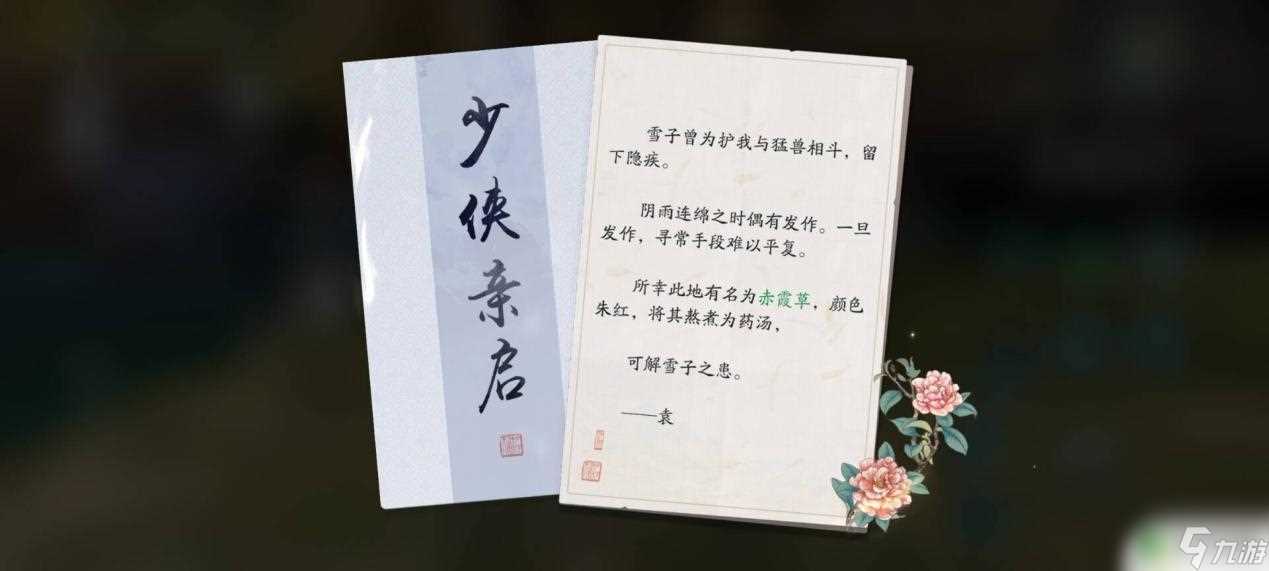 少侠亲启
雪子曾为护我与猛兽相斗，留
下隐疾。
阴雨连绵之时偶有发作。一旦
发作，寻常手段难以平复。
所幸此地有名为赤霞草，颜色
朱红，将其熬煮为药汤，
可解雪子之患。
——袁
九游